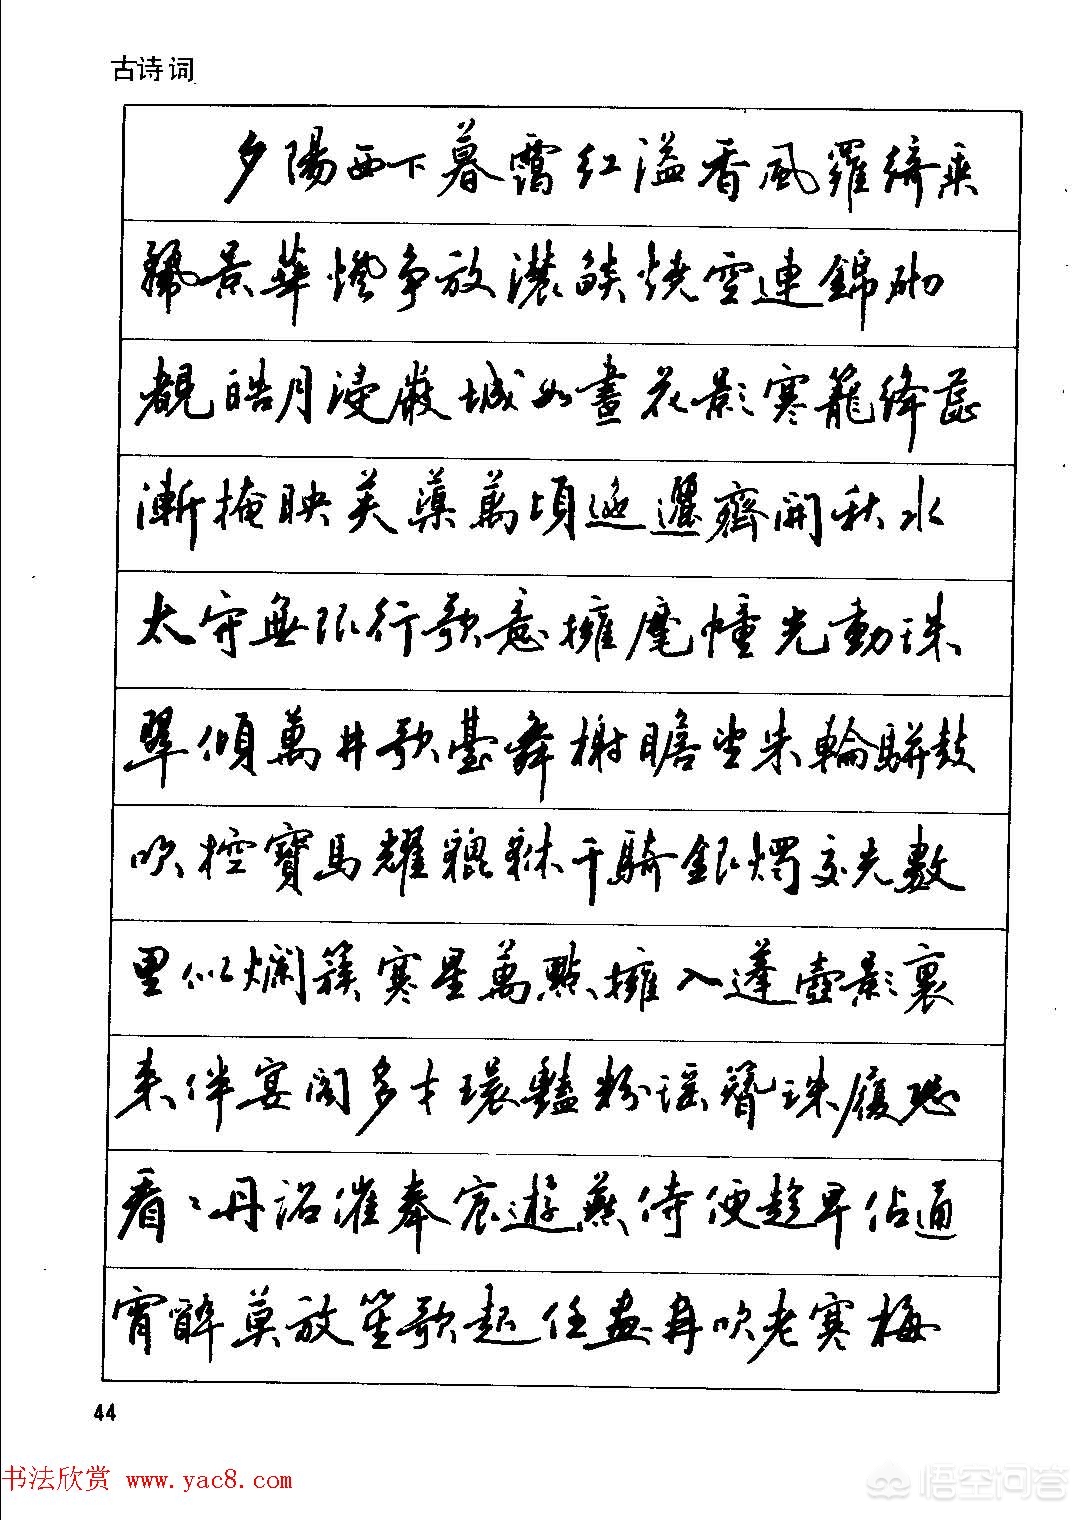 古诗词
夕陽西下暮靄紅溢香風羅綺乘
麗景華燈争放濃燄燒空連錦砌
覩皓月浸嚴城如畫花影寒籠絳蕊
漸掩映芙蕖萬頃迤邐齊開秋水
太守無限行歌意擁麾幢光動珠
翠傾萬井歌臺舞榭瞻望朱輪駢鼓
吹控寶馬耀貔貅千騎銀燭交光數
里似爛簇寒星萬點擁入蓬壺影裏
来伴宴閣多才環艷粉瑶簪珠履恐
看看丹詔催奉宸遊燕侍便趨早佔通
宵醉莫放笙歌起任畫角吹老寒梅
44
书法欣赏 www.yac8.com
悟空问答